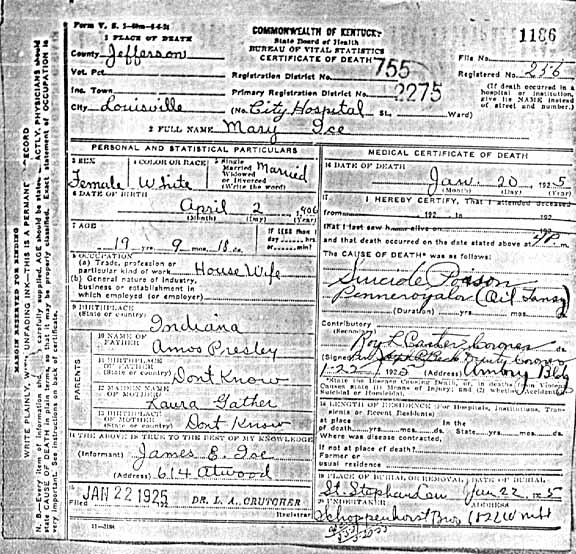 Form V. S.
1 PLACE OF DEATH
COMMONWEALTH OF KENTUCKY
State Board of Health
BUREAU OF VITAL STATISTICS
CERTIFICATE OF DEATH
1186
County Jefferson
File No.
Vot. Pct.
Registration District No. 755
Registered No. 256
Inc. Town
Primary Registration District No. 2275
(If death occurred in a hospital or institution, give its NAME instead of street and number.)
City Louisville (No. City Hospital St., Ward)
2 FULL NAME Mary Ice
PERSONAL AND STATISTICAL PARTICULARS
3 SEX Female
4 COLOR OR RACE White
5 Single Married Widowed or Divorced (Write the word) Married
6 DATE OF BIRTH April 2 1906
(Month) (Day) (Year)
7 AGE
19 yrs. 9 mos. 18 ds.
If LESS than day hrs. or min.?
8 OCCUPATION
(a) Trade, profession or particular kind of work House Wife
(b) General nature of industry, business or establishment in which employed (or employer)
9 BIRTHPLACE (State or country) Indiana
PARENTS
10 NAME OF FATHER Amos Presley
11 BIRTHPLACE OF FATHER (State or country) Dont Know
12 MAIDEN NAME OF MOTHER Laura Gather
13 BIRTHPLACE OF MOTHER (State or country) Dont Know
14 THE ABOVE IS TRUE TO THE BEST OF MY KNOWLEDGE
(Informant) James E. Ice
(Address) 614 Atwood
15
Filed JAN 22 1925
DR. L. A. CRUTCHER
Registrar
MEDICAL CERTIFICATE OF DEATH
16 DATE OF DEATH
Jan 20 1925
(Month) (Day) (Year)
17 I HEREBY CERTIFY, That I attended deceased
from 192 to 192
that I last saw h alive on 192
and that death occurred on the date stated above at m.
The CAUSE OF DEATH* was as follows:
Suicide Poison
(Oil Tansy)
(Duration) yrs. mos. ds.
Contributory
(Secondary)
Roy L Carter Coroner
(Signed) Deputy Coroner
1-22 1925 (Address)
*State the Disease Causing Death, or, in deaths from Violent Causes state (1) Means of Injury; and (2) whether Accidental, Suicidal or Homicidal.
18 LENGTH OF RESIDENCE (For Hospitals, Institutions, Transients or Recent Residents)
At place of death yrs. mos. ds. State yrs. mos. ds.
Where was disease contracted,
if not at place of death?
Former or
usual residence
19 PLACE OF BURIAL OR REMOVAL DATE OF BURIAL
Jan 22 1925
20 UNDERTAKER ADDRESS
Schoppenhorst Bros
MARGIN RESERVED FOR BINDING
WRITE PLAINLY WITH UNFADING INK—THIS IS A PERMANENT RECORD